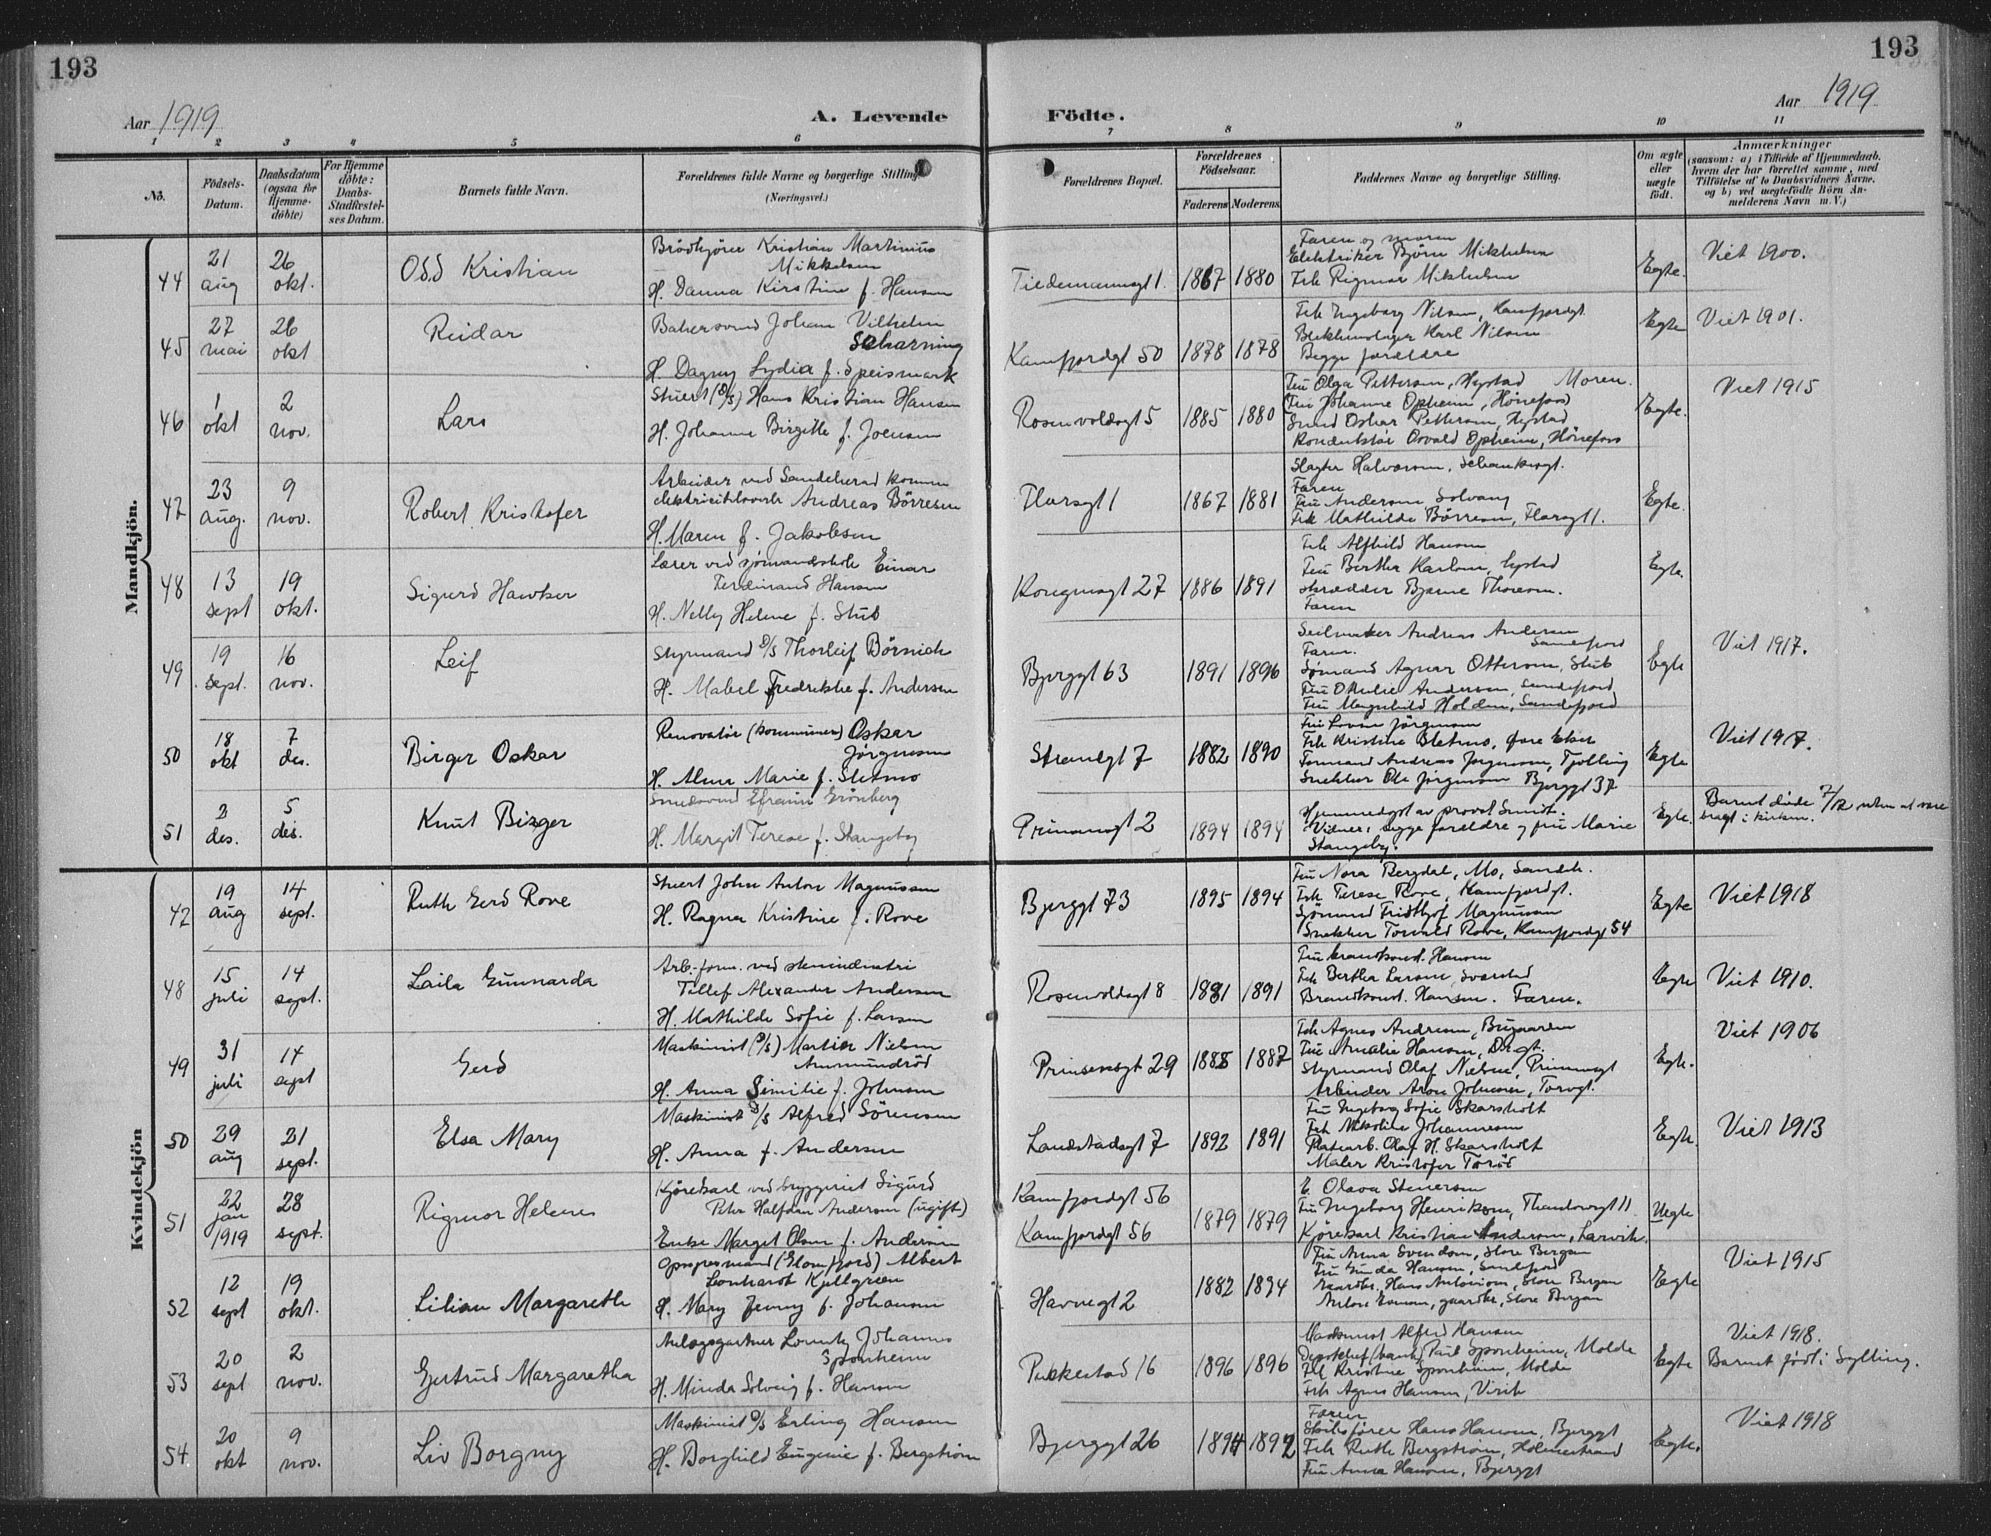 193
193
Aar 1919
A. Levende Födte.
Aar 1919
1 2 3 4 5 6 7 8 9 10 11
No.
Födsels-Datum.
Daabsdatum (ogsaa for Hjemme-döbte)
For Hjemme döbte: Daabs-Stadfæstel-ses Datum.
Barnets fulde Navn.
Forældrenes fulde Navne og borgerlige Stilling (Næringsvei.)
Forældrenes Bopæl.
Forældrenes Födselsaar.
Faderens Moderens
Faddernes Navne og borgerlige Stilling.
Om ægte eller uægte födt.
Anmærkninger
(saasom: a) i Tilfælde af Hjemmedaab.
hvem der har forrettet samme, med
Tilföielse af to Daabsvidners Navne.
og b) ved uægtefödte Börn An-
melderens Navn m. V.)
Mandkjön.
44
21 aug
26 okt.
Odd Kristian
Brödkjörer Kristian Martinius
Mikkelsen
H. Danna Kirstine f. Hansen
Tiedemannsgt 1.
1867 1880
Faren og moren
Elektriker Bjørn Mikkelsen
Frk Rigmor Mikkelsen
Egte.
Viet 1900.
45
27 mai
26 okt
Reidar
Bakersvend Johan Vilhelm
Scharning
H. Dagny Lydia f. Speismark
Kamfjordgt 50
1878 1878
Frk Ingeborg Nilsen, Kamfjordgt
Blikkenslager Karl Nilsen
Begge forældre
Egte
Viet 1901.
46
1 okt
2 nov.
Lars
Stuert (D/S) Hans Kristian Hansen
H. Johanne Birgitte f. Joensen
Rosenvoldsgt 5
1885 1880
Fru Olga Pettersen, Nystad Moren.
Fru Johanne Opheim, Hönefoss
Smed Oskar Pettersen, Nystad
Konduktör Osvald Opheim, Hönefoss
Egte.
Viet 1915
47
23 aug.
9 nov.
Robert Kristofer
Arbeider ved Sandeherad komm
elektricitetsverk Andreas Börresen
H. Maren f. Jakobsen
Florsgt 1
1867 1881
Slagter Halvorsen,
Faren
Fru Andersen Solvang
Frk Mathilde Börresen, Florsgt 1.
Egte.
48
13 sept
19 okt.
Sigurd Hawker
Lærer ved sjömandsskole Einar
Ferdinand Hansen
H. Nelly Helene f. Stub
Kongensgt 27
1886 1891
Frk Alfhild Hansen
Fru Berthe Karlsen, Nystad
skrædder Bjarne Thoresen.
Faren
Egte.
49
19 sept.
16 nov.
Leif
Styrmand D/S Thorleif Börnich
H. Mabel Fredrikke f. Andersen
Bjerggt 63
1891 1896
Seilmaker Andreas Andersen
Sandefjord
Faren.
Sjömand Agnar Ottersen, Stub
Fru Othilie Andersen, Sandefjord
Fru Magnhild Holden, Sandefjord
Egte
Viet 1917.
50
18 okt
7 des.
Birger Oskar
Renovatör (kommunen) Oskar
Jörgensen
H. Alma Marie f. Sletmo
Strandgt 7
1882 1890
Fru Lovise Jörgensen
Frk Kristine Sletmo, övre Eker
Formand Andreas Jörgensen, Tjölling
Snekker Ole Jörgensen Bjerggt 37
Egte
Viet 1917.
51
2 des.
5 des.
Knut Birger
Smedsvend Efraim Grönberg
H. Margit Terese f. Stangeby
Prinsensgt 2
1894 1894
Hjemmedöpt av provst Smidt.
Vidner: begge forældre og fru Marie
Stangeby.
Egte.
Barnet döde 7/12 uten at være
bragt i kirken.
Kvindekjön
47
19 aug
14 sept.
Ruth Gerd Rove
Stuert John Anton Magnussen
H. Ragna Kristine f. Rove
Bjerggt 73
1895 1894
Fru Nora Bergdal, Mo, Sandeh.
Frk Terese Rove, Kamfjordgt.
Sjömand Fridthjof Magnussen
Snekker Torvald Rove, Kamfjordgt 54
Egte
Viet 1918
48
15 juli
14 sept.
Laila Gunnarda
Arb.-form. ved stenindustri
Tellef Alexander Andersen
H. Mathilde Sofie f. Larsen
Rosenvoldsgt 8
1881 1891
Fru brandkonst. Hansen
Frk Bertha Larsen, Svarstad
Brandkonst. Hansen. Faren.
Egte
Viet 1910.
49
31 juli
14 sept
Gerd
Maskinist (D/S) Martin Nielsen
Ammundröd
H. Anna Similie f. Johnsen
Prinsensgt 29
1888 1887
Frk Agnes Andresen, Bugaarden
Fru Amalie Hansen, Dr.gt.
Styrmand Olaf Nielsen, Prinsensgt
Arbeider Aron Johnsen, Torvgt.
Egte.
Viet 1906
50
29 aug
21 sept.
Elsa Mary
Maskinist D/S Alfred Sörensen
H. Anna f. Andersen
Landstadsgt 7
1892 1891
Fru Ingeborg Sofie Skarsholt
Frk Nikoline Johannesen
Platearb. Olaf H. Skarsholt
Maler Kristofer Toröd
Egte.
Viet 1913
51
22 jan 1919
28 sept.
Rigmor Helene
Kjörekarl ved bryggeriet Sigurd
Peter Halfdan Andersen (ugift)
Enke Marget Olsen f. Andersen
Kamfjordgt 56
Kamfjordgt 56
1879 1879
E. Olava Stenersen
Fru Ingeborg Henriksen, 11
Kjörekarl Kristian Andersen, Larvik
Uegte
52
12 sept
19 okt.
Lilian Margareth
Opsynsmand (Glomfjord) Albert
Leonhardt Kjellgreen
H. Mary Jenny f. Johansen
Havnegt 2
1882 1894
Fru Anna Svendsen, Store Bergan
Fru Gunda Hansen, Sandefjord
Gaardbr. Hans Antonsen, Store Bergan
Anton gaardbr, Store Bergan
Egte
Viet 1915
53
20 sept
2 nov.
Gjertrud Margaretha
Anlægsgartner Lorentz Johannes
Sponheim
H. Minda Solveig f. Hansen
Pukkestad 16
1896 1896
Maskinist Alfred Hansen
Paul Sponheim, Molde
Frk Kristine Sponheim, Molde
Frk Agnes Hansen, Virik
Egte
Viet 1918.
Barnet födt i Sylling.
54
20 okt
9 nov.
Liv Borgny
Maskinist D/S Erling Hansen
H. Borghild Eugenie f. Bergström
Bjerggt 26
1894 1892
Faren
Skibsförer Hans Hansen, Bjerggt
Frk Ruth Bergström, Holmestrand
Fru Anna Hansen, Bjerggt
Egte.
Viet 1918